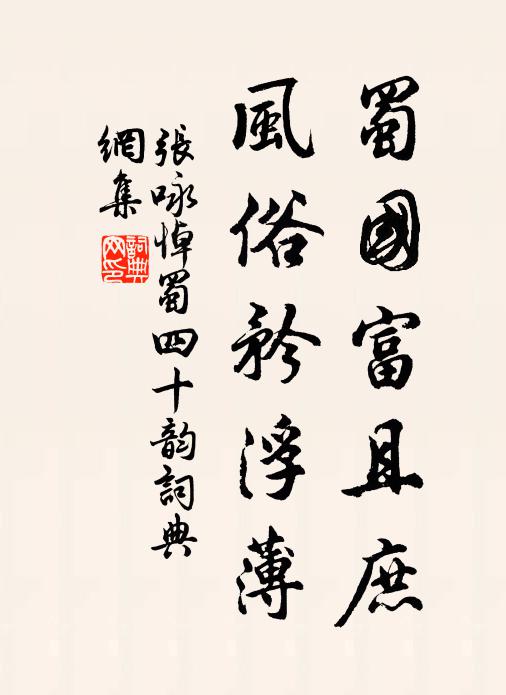 蜀國富且庶
風俗矜浮薄
張咏悼蜀四十韵詞典
網集
詞典网印